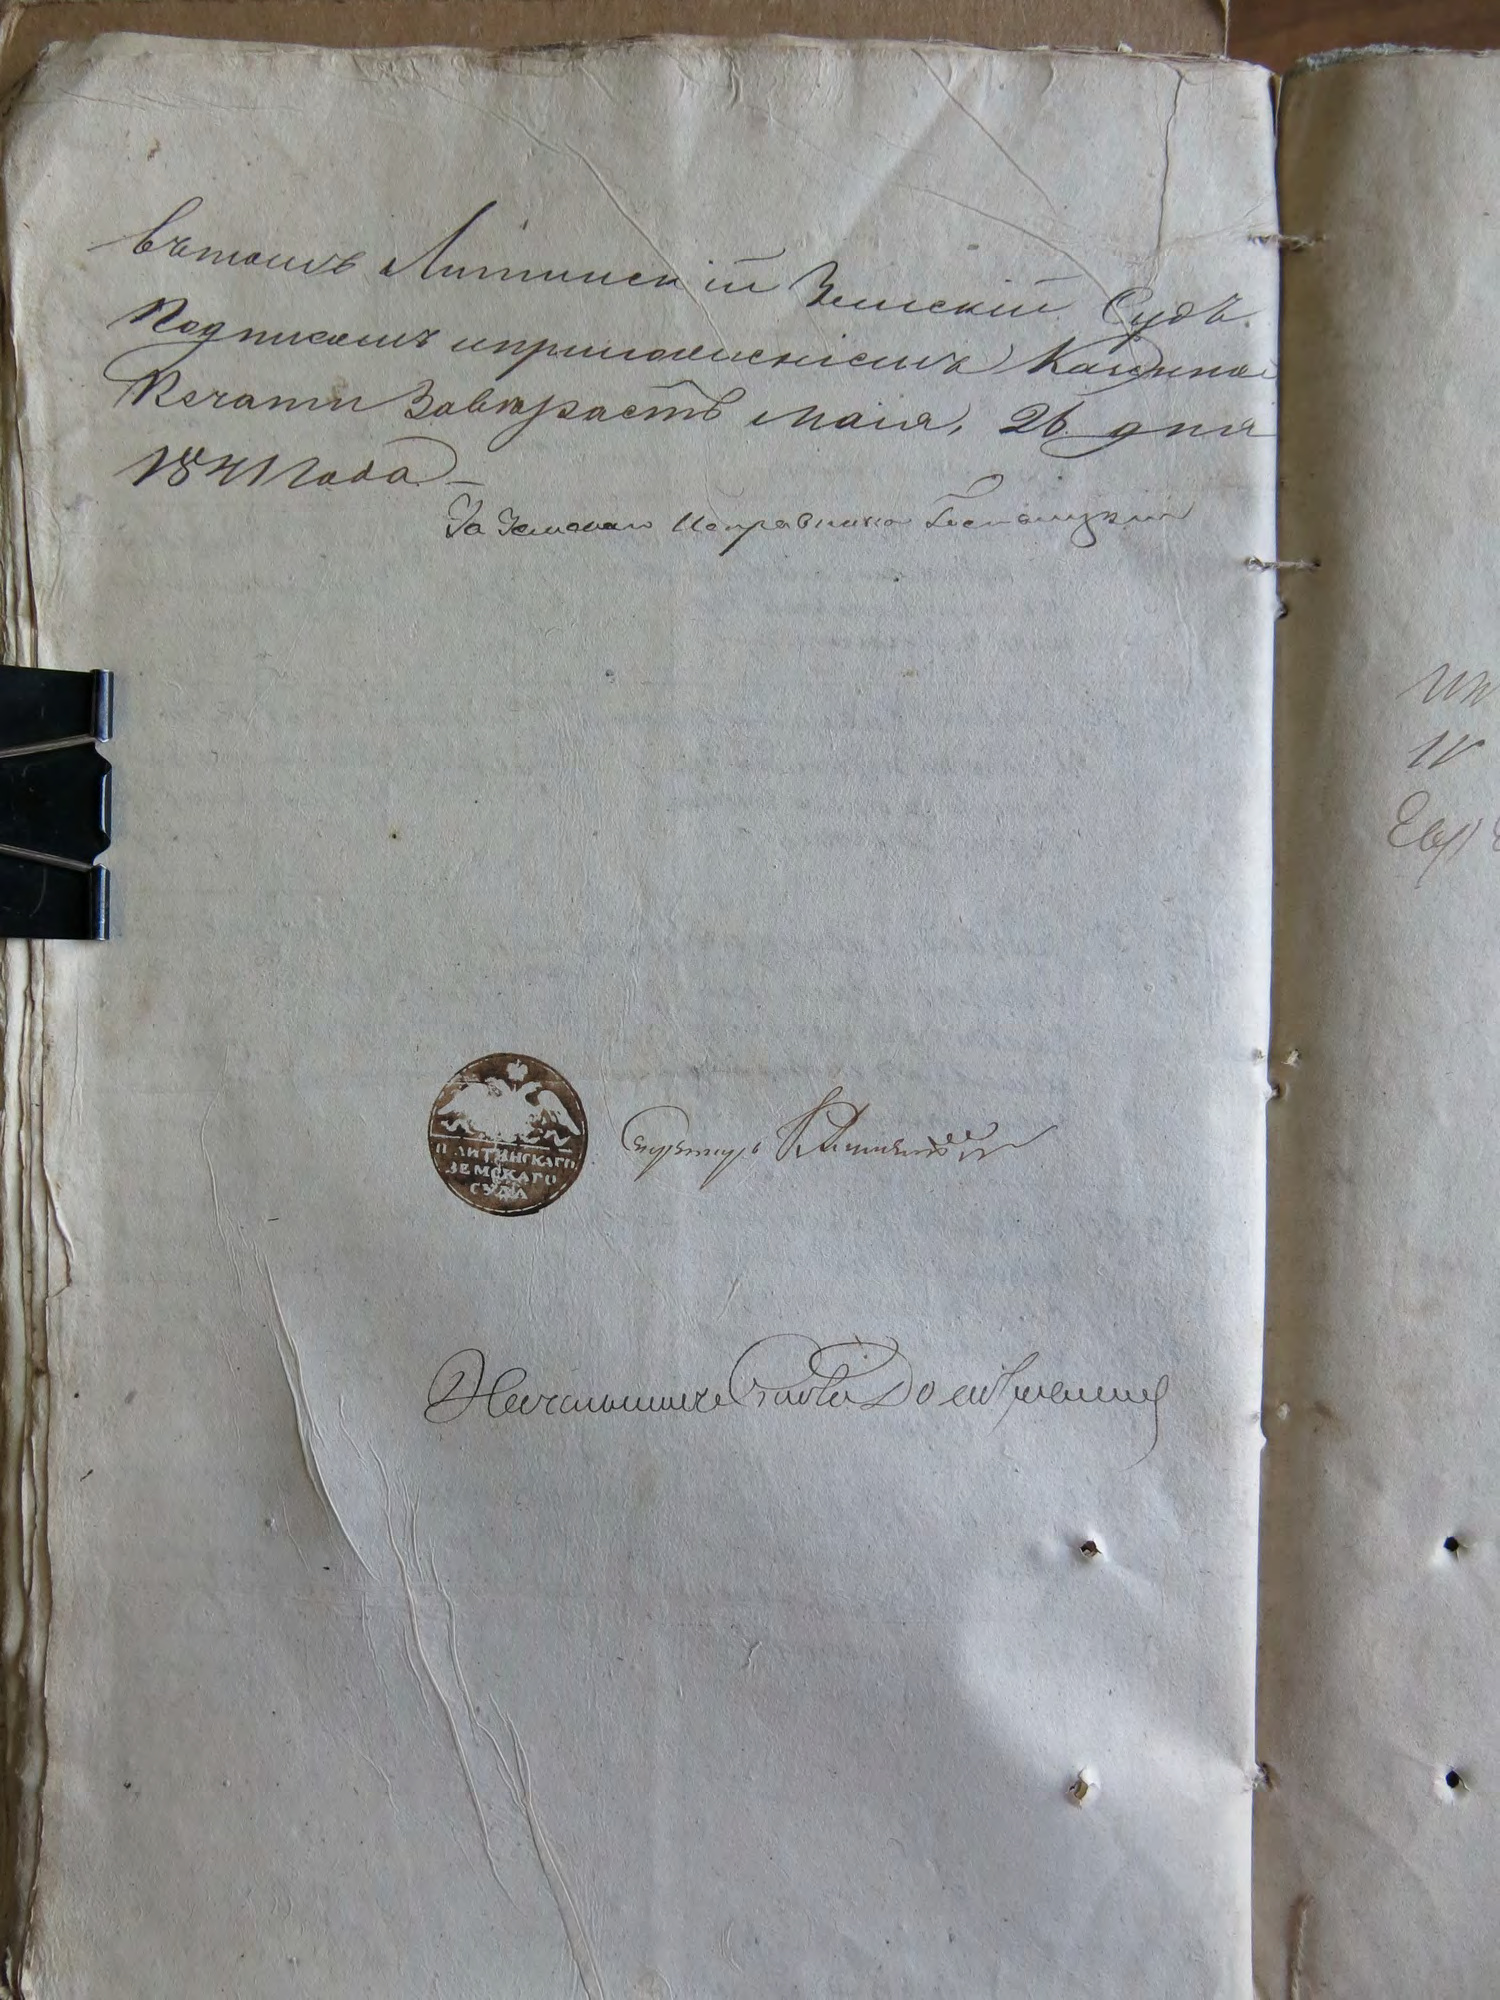 вътомъ Литинскій Земскій Судъ
Подписомъ иприложеніемъ Казенной
Печати Завѣраетъ маія, 26 дня
1841 Года —
За Земскаго Исправника
П. ЛИТИНСКАГО
ЗЕМСКАГО
СУДА
Секретарь
Начальникъ Стола